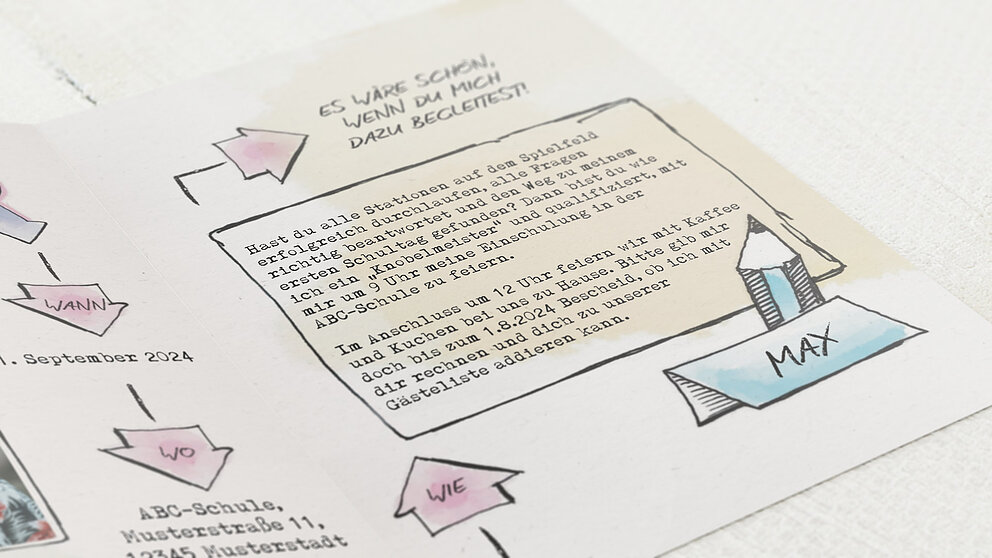 ES WÄRE SCHÖN,
WENN DU MICH
DAZU BEGLEITEST!
Hast du alle Stationen auf dem Spielfeld
erfolgreich durchlaufen, alle Fragen
richtig beantwortet und den Weg zu meinem
ersten Schultag gefunden? Dann bist du wie
ich ein "Knobelmeister" und qualifiziert, mit
mir um 9 Uhr meine Einschulung in der
ABC-Schule zu feiern.
Im Anschluss um 12 Uhr feiern wir mit Kaffee
und Kuchen bei uns zu Hause. Bitte gib mir
doch bis zum 1.8.2024 Bescheid, ob ich mit
dir rechnen und dich zu unserer
Gästeliste addieren kann.
MAX
WANN
1. September 2024
WO
ABC-Schule,
Musterstraße 11,
12345 Musterstadt
WIE